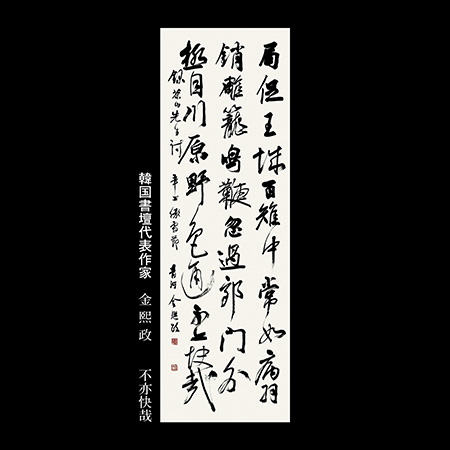 局促王城百雉中常如病羽
鎖雕籠鳴鞭忽過郭門外
極目川原野色通不亦快哉
錄茶山先生詩 辛丑 節 金熙政
韓国書壇代表作家 金熙政 不亦快哉